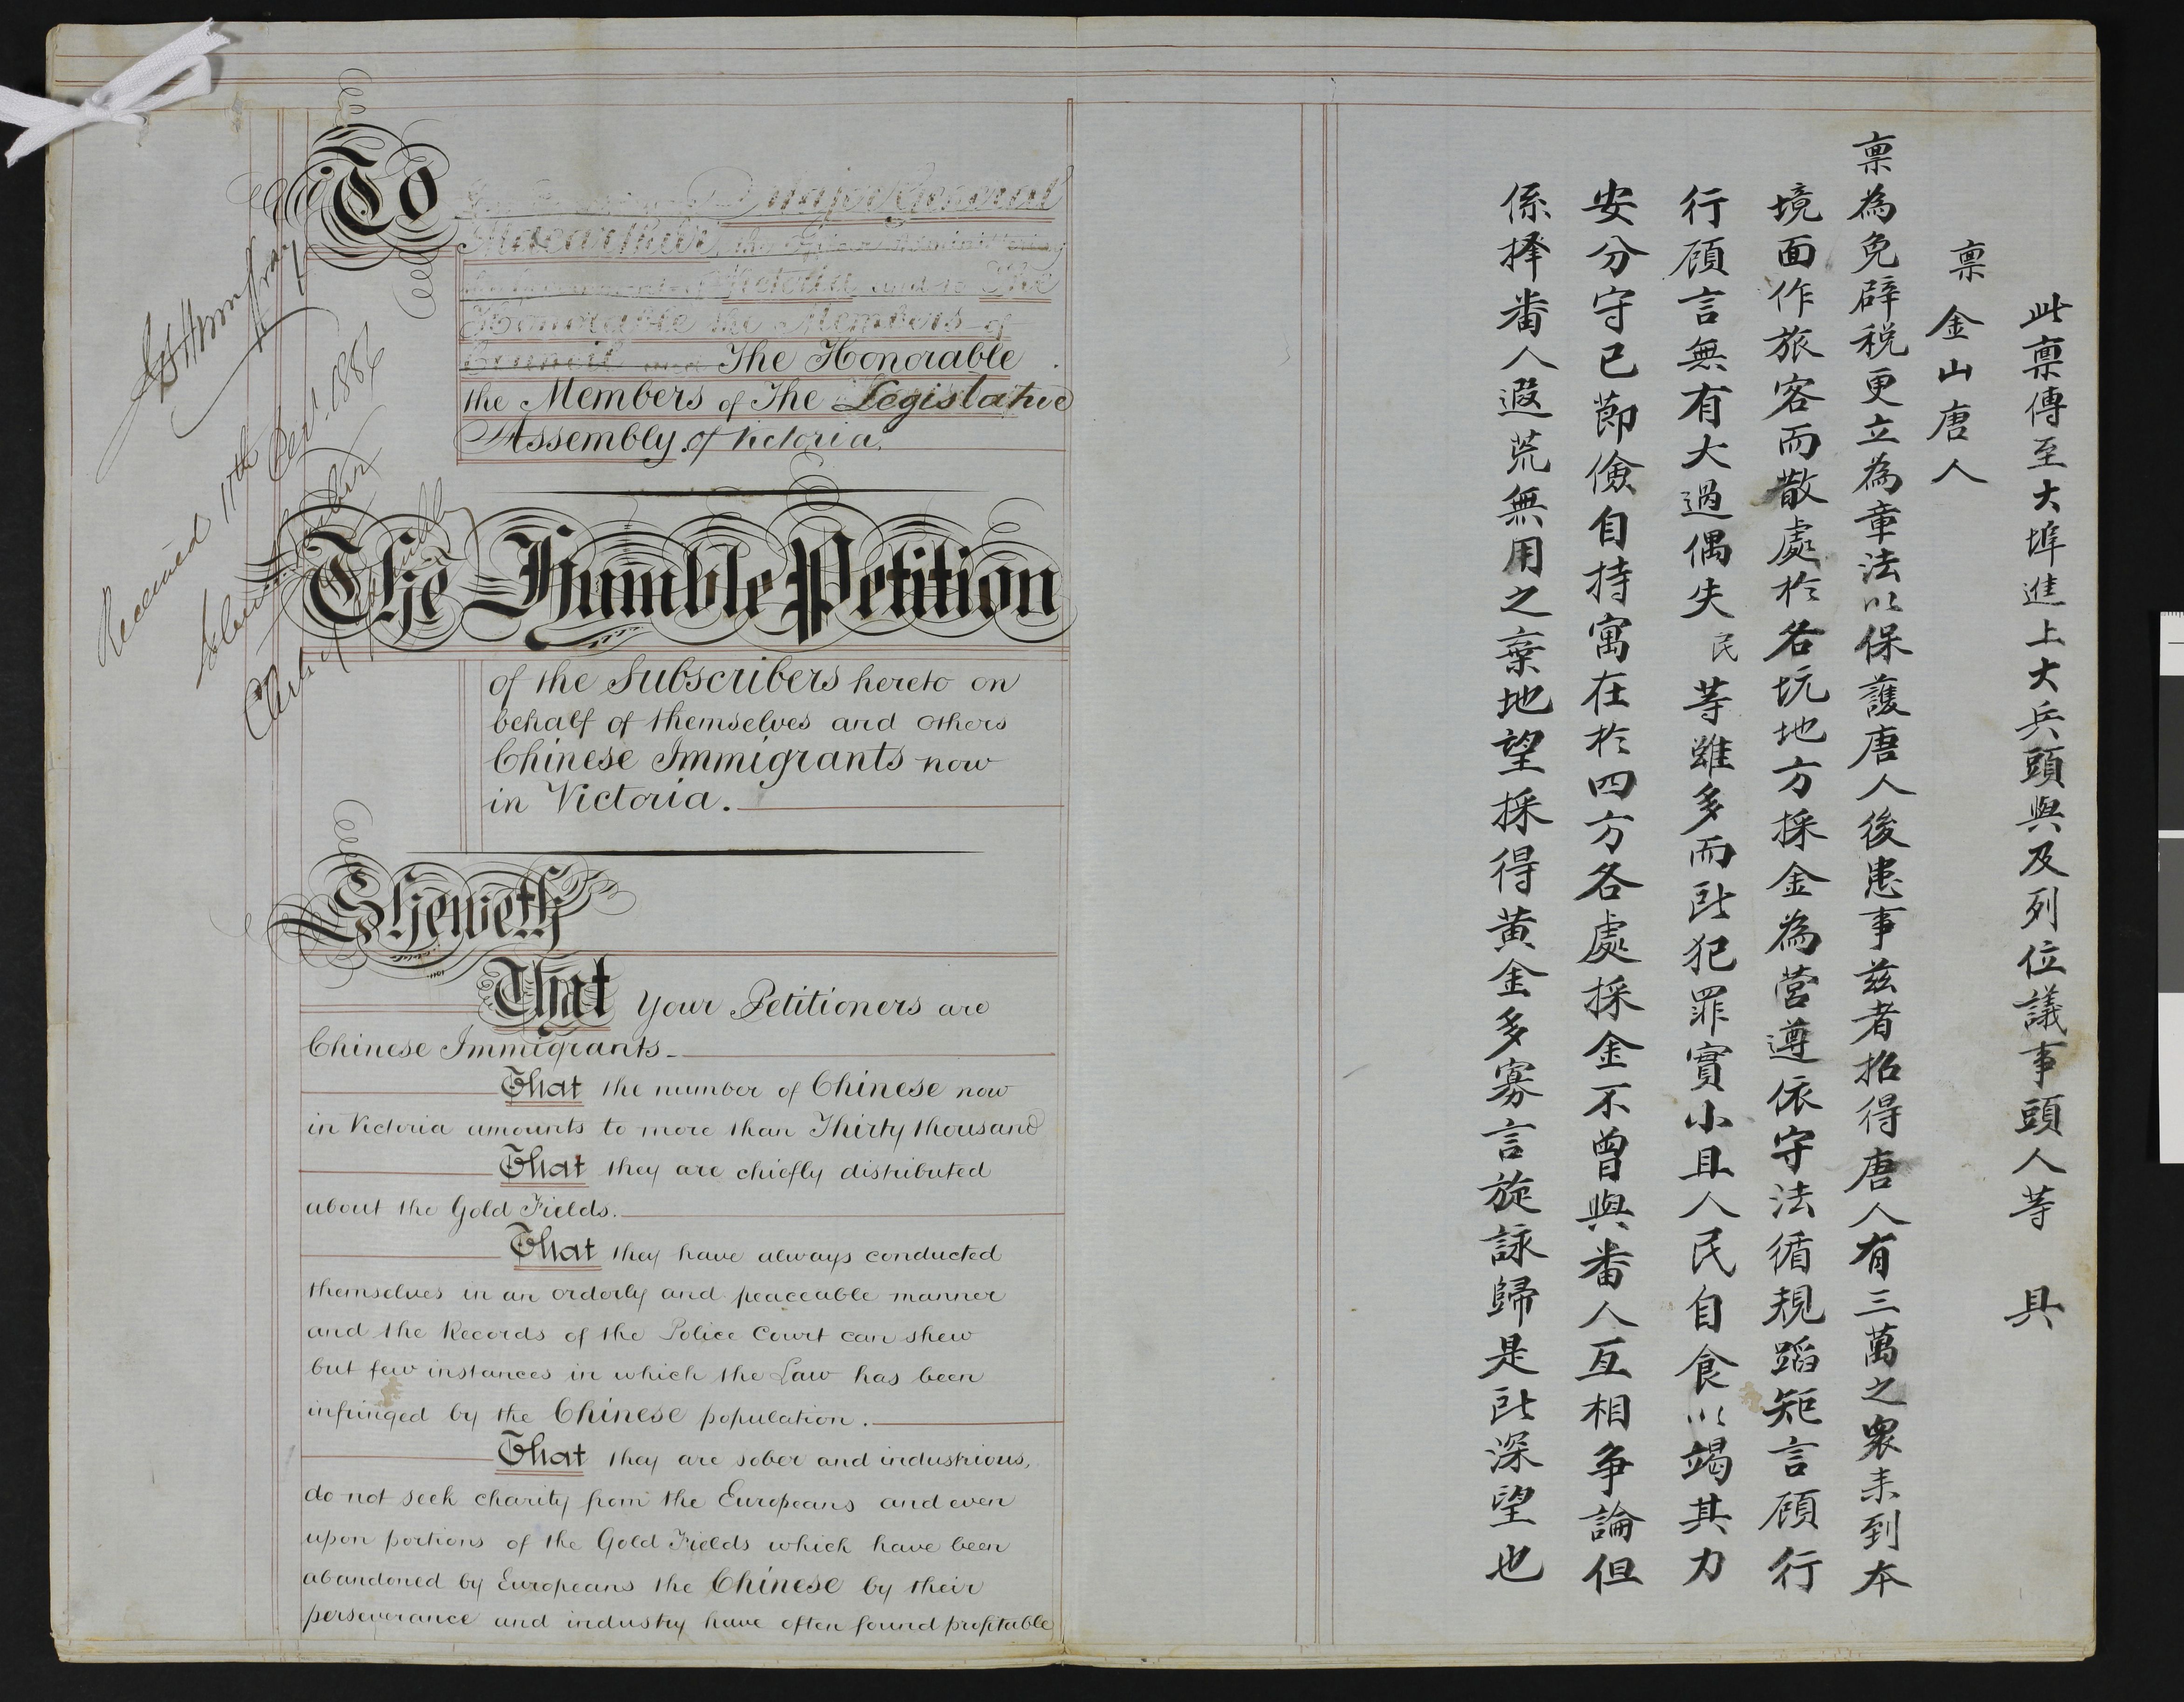 To
Major General
Macarthur, the Officer Administering
the Government of Victoria and to The
Honorable the Members of
Council and The Honorable
the Members of The Legislative
Assembly of Victoria.
The Humble Petition
of the Subscribers hereto on
behalf of themselves and others
Chinese Immigrants now
in Victoria.
Sheweth
That Your Petitioners are
Chinese Immigrants
That the number of Chinese now
in Victoria amounts to more than Thirty thousand
That they are chiefly distributed
about the Gold Fields.
That they have always conducted
themselves in an orderly and peaceable manner
and the Records of the Police Court can shew
but few instances in which the Law has been
infringed by the Chinese population.
That they are sober and industrious,
do not seek charity from the Europeans and even
upon portions of the Gold Fields which have been
abandoned by Europeans the Chinese by their
perseverance and industry have often found profitable
Received 11th
Clerk of
此禀傳至大埠進上大兵頭與及列位議事頭人等 具
禀 金山唐人
禀為免辟税更立為章法以保護唐人後患事兹者招得唐人有三萬之衆耒到本
境面作旅客而散處於各坑地方採金為營遵依守法循規蹈矩言顧行
行顧言無有大過偶失民等雖多而所犯罪實小且人民自食以竭其力
安分守已節儉自持寓在於四方各處採金不曾與番人互相争論但
係擇番人遐荒無用之棄地望採得黄金多寡言旋詠歸是所深望也